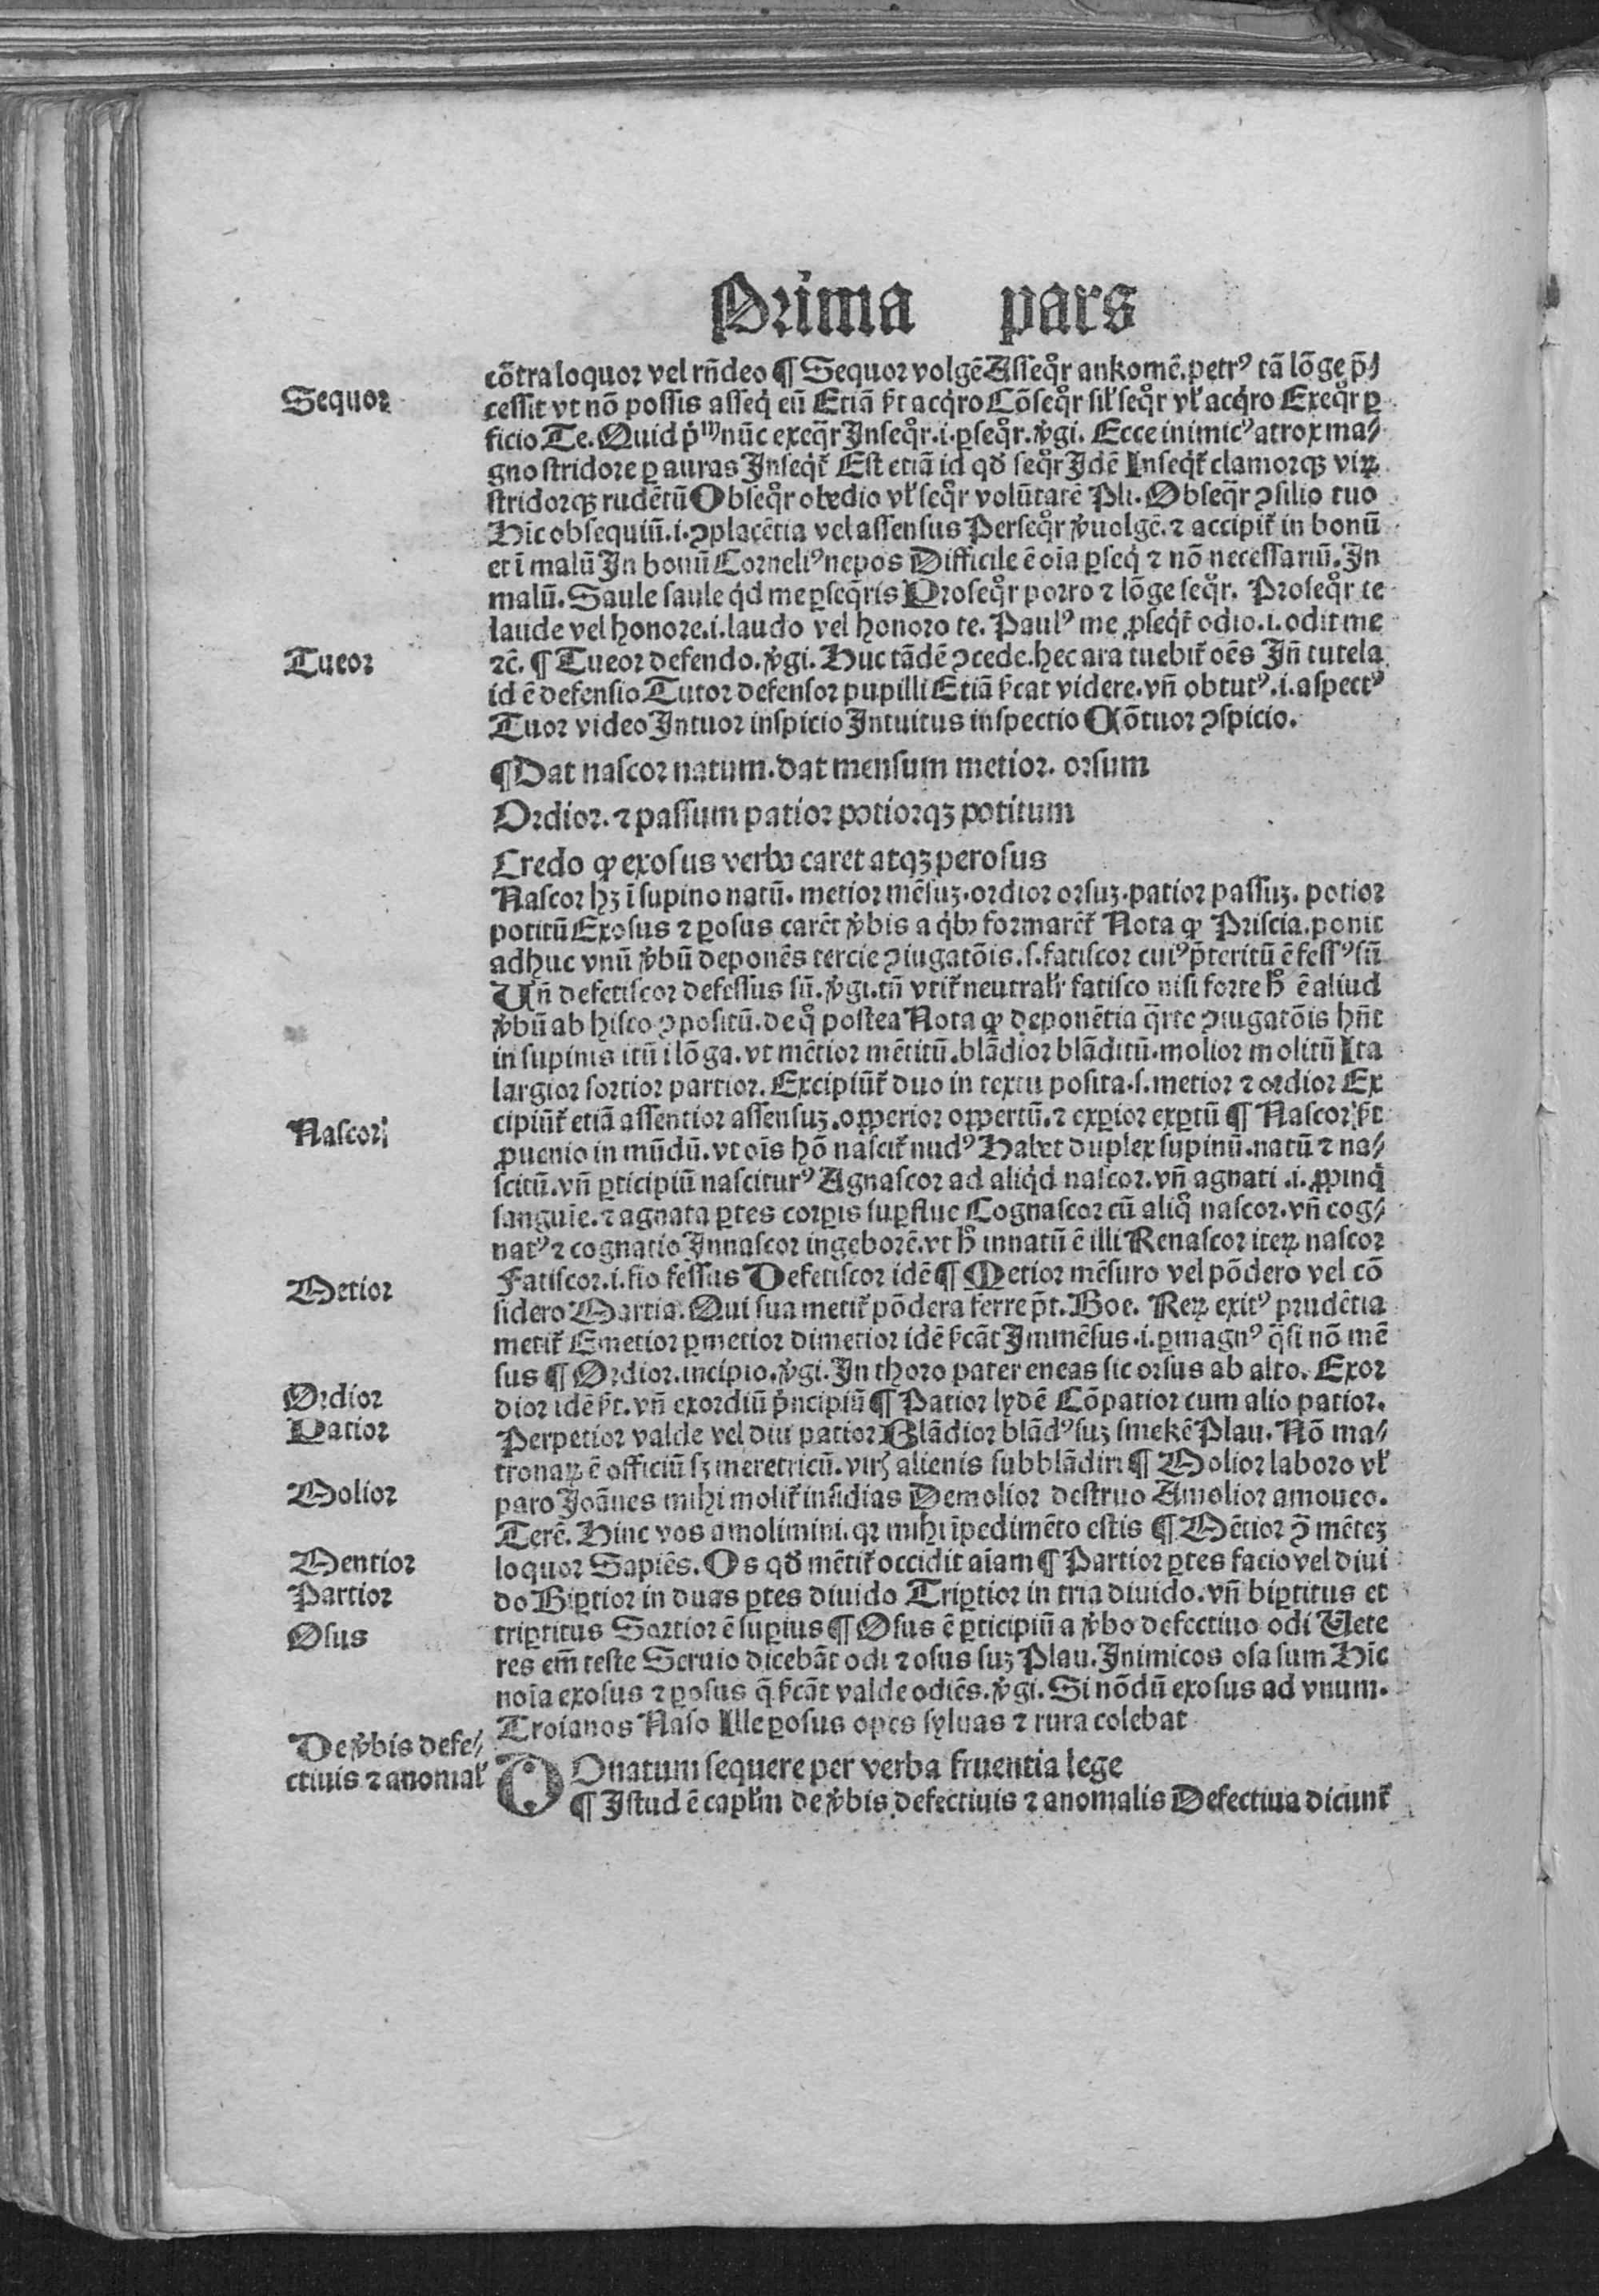 Prima pars
cōtraloquor vel rn̄deo ¶ Sequor volgē Asseqͦr ankomē. petrꝰ tā lōge p̄⸗
Sequor
cessit vt nō possis asseq̇ eū Etiā sīt acq̇ro Cōseqͦr sil̓ seqͦr vl̓ acq̇ro Exeqͦr ꝑ
ficio Te. Quid nūc exeq̄r Inseqͦr .i. ꝑseqͦr. v̓gi. Ecce inimicꝰ atrox ma⸗
gno stridore ꝑ auras Inseq̇t᷑ Est etiā id qd̓ seqͦr Idē Inseq̇t᷑ clamorqꝫ viꝝ
stridorqꝫ rudētū Obseqͦr obedio vl̓ seqͦr volūtatē Pli. Obseq̄r ꝯsilio tuo
Hic obsequiū .i. ꝯplacētia vel assensus Perseqͦr v̓uolgē. ⁊ accipit᷑ in bonū
et ī malū In bonū Corneliꝰ nepos Difficile ē oīa ꝑseq̇ ⁊ nō necessariū. In
malū. Saule saule q̇d me ꝑseq̄ris Proseqͦr porro ⁊ lōge seqͦr. Proseqͦr te
laude vel honore .i. laudo vel honoro te. Paulꝰ me ꝓseq̇t᷑ odio .i. odit me
Tueor
⁊c̄. ¶ Tueor defendo. v̓gi. Huc tādē ꝯcede. hec ara tuebit᷑ oēs Jn̄ tutela
id ē defensio Tutor defensor pupilli Etiā sīcat videre. vn̄ obtutꝰ .i. aspectꝰ
Tuor video Intuor inspicio Intuitus inspectio Cōtuor ꝯspicio.
¶ Dat nascor natum. dat mensum metior. orsum
Ordior. ⁊ passum patior potiorqꝫ potitum
Credo ꝙ exosus verbo caret atqꝫ perosus
Nascor hꝫ ī supino natū. metior mēsuꝫ. ordior orsuꝫ. patior passuꝫ. potior
potitū Exosus ⁊ ꝑosus carēt v̓bis a q̇bꝰ formarēt᷑ Nota ꝙ Priscia. ponit
adhuc vnū v̓bū deponēs tercie ꝯiugatōis .s. fatiscor cuiꝰ p̄teritū ē fessꝰ sū
Un̄ defetiscor defessus sū. v̓gi. tn̄ vtit᷑ neutral̓r fatisco nisi forte hͦ ē aliud
v̓bū ab hisco ꝯpositū. de qͦ postea Nota ꝙ deponētia q̄rte ꝯiugatōis hn̄t
in supinis itū i lōga. vt mētior mētitū. blādior blāditū. molior molitū Ita
largior sortior partior. Excipiūt᷑ duo in textu posita .s. metior ⁊ ordior Ex
cipiūt᷑ etiā assentior assensuꝫ. opꝑior opꝑtū. ⁊ exꝑior exꝑtū ¶ Nascor sīt
Nascor
ꝓuenio in mūdū. vt oīs hō nascit᷑ nudꝰ Habet duplex supinū. natū ⁊ na⸗
scitū. vn̄ ꝑticipiū nasciturꝰ Agnascor ad aliq̇d nascor. vn̄ agnati .i. ꝓpinq̇
sanguīe. ⁊ agnata ꝑtes corꝑis suꝑflue Cognascor cū aliqͦ nascor. vn̄ cog⸗
natꝰ ⁊ cognatio Innascor ingeborē. vt hͦ innatū ē illi Renascor iteꝝ nascor
Metior
Fatiscor .i. fio fessus Defetiscor idē ¶ Metior mēsuro vel pōdero vel cō
sidero Martia. Qui sua metit᷑ pōdera ferre p̄t. Boe. Reꝝ exitꝰ prudētia
metit᷑ Emetior ꝑmetior dimetior idē sīcāt Immēsus .i. ꝑmagnꝰ q̄si nō mē
sus ¶ Ordior. incipio. v̓gi. In thoro pater eneas sic orsus ab alto. Exor
Ordior
dior idē sīt. vn̄ exordiū p̓ncipiū ¶ Patior lydē Cōpatior cum alio patior.
Patior
Perpetior valde vel diu patior Blādior blādꝰ suꝫ smekē Plau. Nō ma⸗
tronaꝝ ē officiū sꝫ meretriciū. viris alienis subblādiri ¶ Molior laboro vl̓
Molior
paro Joānes mihi molit᷑ insidias Demolior destruo Amolior amoueo.
Terē. Hinc vos amolimini. qꝛ mihi īpedimēto estis ¶ Mētior ꝯ̄ mēteꝫ
Mentior
loquor Sapiēs. Os qd̓ mētit᷑ occidit aīam ¶ Partior ꝑtes facio vel diui
Partior
do Biꝑtior in duas ꝑtes diuido Triꝑtior in tria diuido. vn̄ biꝑtitus et
Osus
triꝑtitus Sortior ē suꝑius ¶ Osus ē ꝑticipiū a v̓bo defectiuo odi Vete
res em̄ teste Seruio dicebāt odi ⁊ osus suꝫ Plau. Inimicos osa sum Hic
noīa exosus ⁊ ꝑosus q̄ sīcāt valde odiēs. v̓gi. Si nōdū exosus ad vnum.
Troianos Naso Ille ꝑosus opes syluas ⁊ rura colebat
De v̓bis defe⸗
ctiuis ⁊ anomal̓
DOnatum sequere per verba fruentia lege
¶ Istud ē capl̓m de v̓bis defectiuis ⁊ anomalis Defectiua dicunt᷑